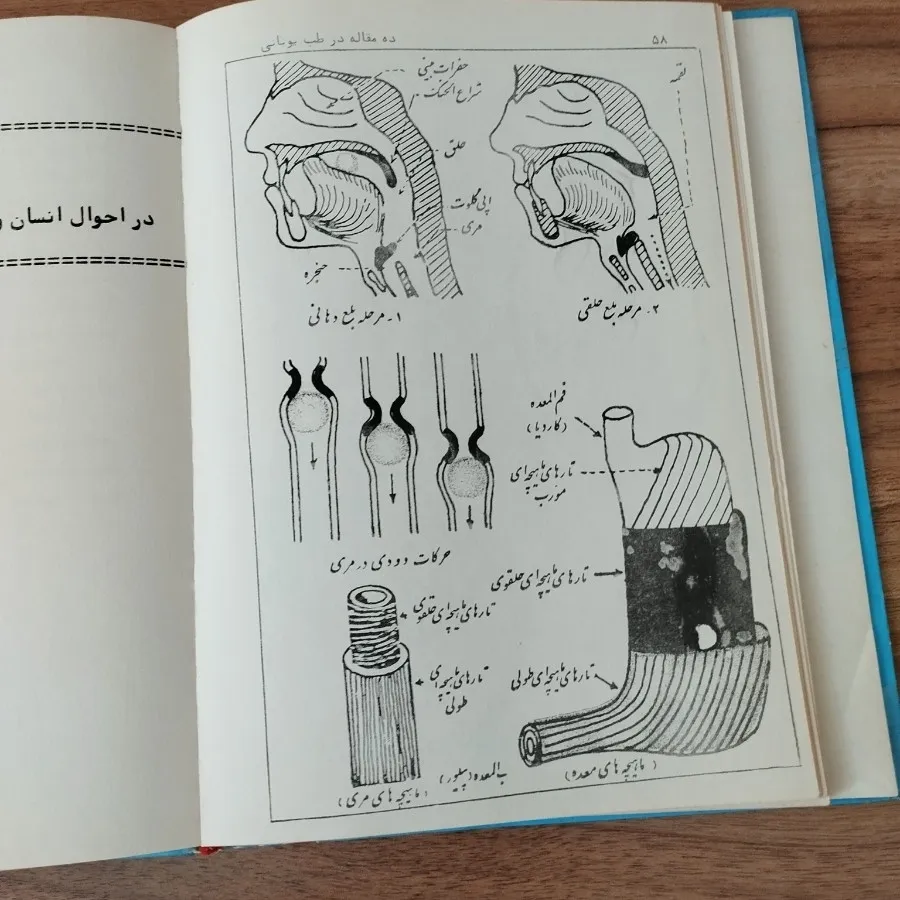 در احوال انسان و
ده مقاله در طب یونانی
۵۸
حفرات بینی
شراع الحنک
حلق
اپی گلوت
مری
حنجره
۱- مرحله بلع دهانی
لقمه
۲- مرحله بلع حلقی
فم المعده
(کاردیا)
تارهای ماهیچه‌ای
مورب
حرکات دودی در مری
تارهای ماهیچه‌ای حلقوی
تارهای ماهیچه‌ای حلقوی
تارهای ماهیچه‌ای
طولی
تارهای ماهیچه‌ای طولی
(ماهیچه های مری)
ب المعده (پیلور)
(ماهیچه های معده)